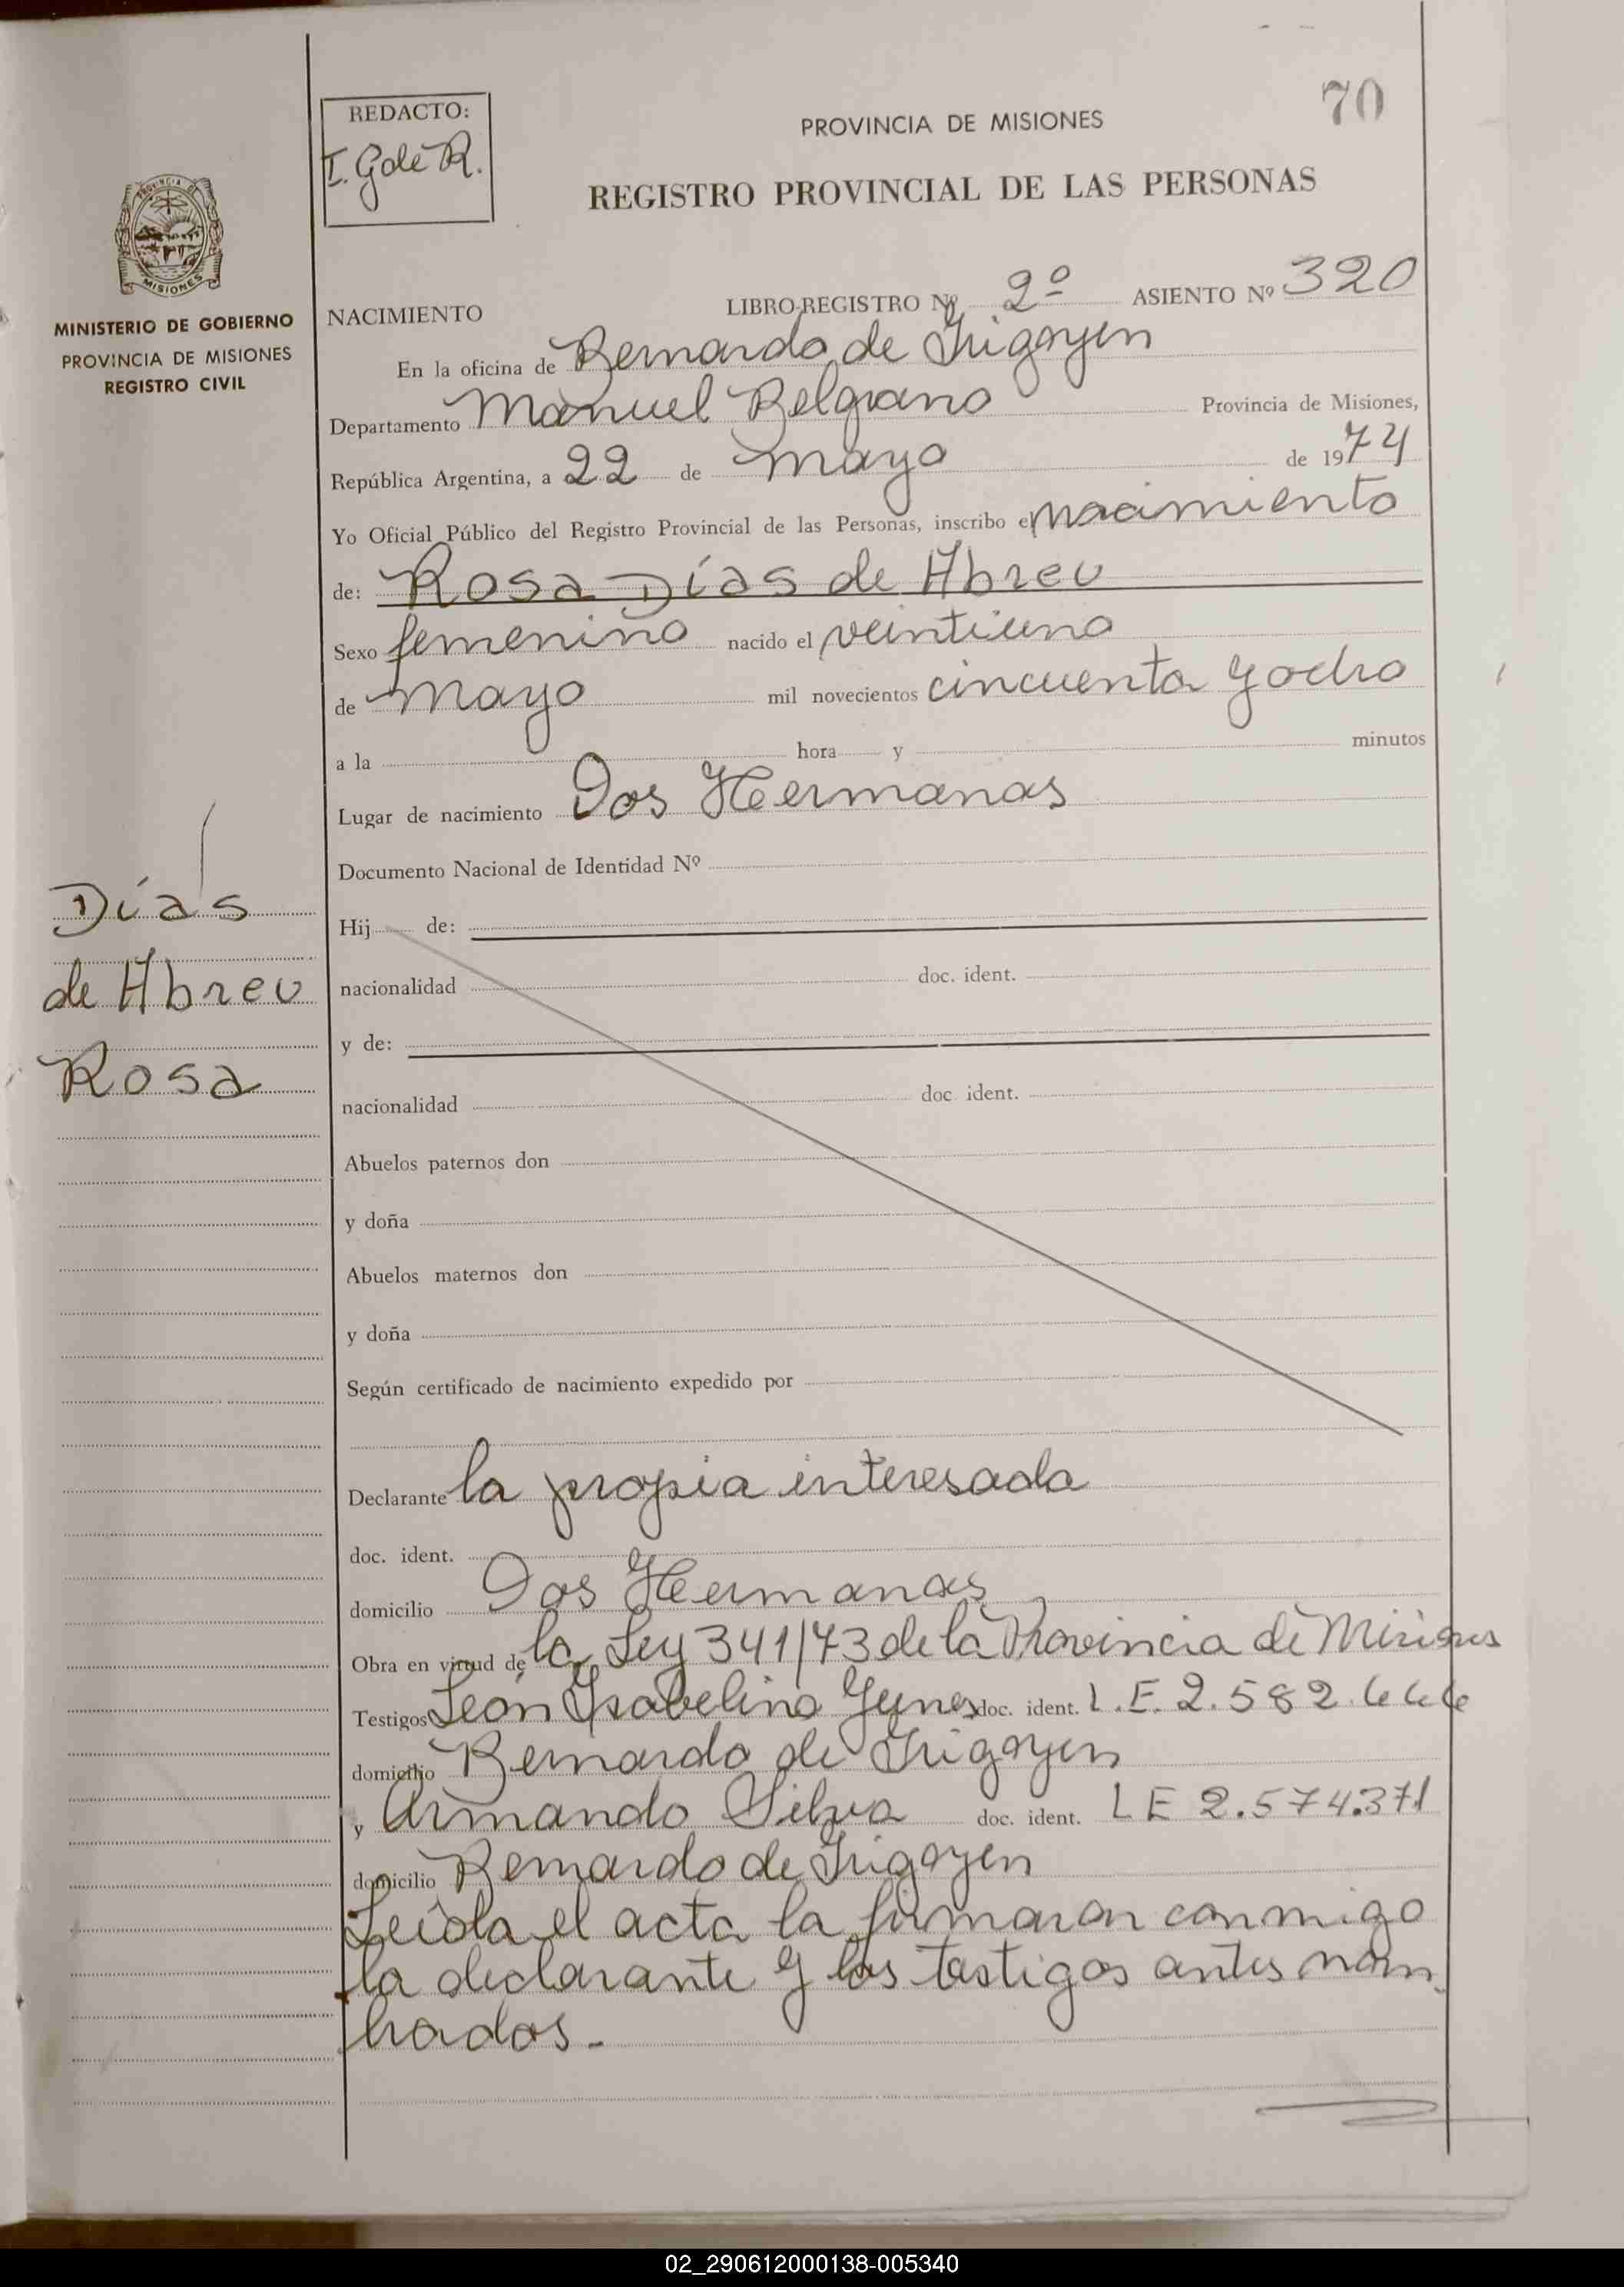 70
REDACTO:
I. Golé R.
PROVINCIA DE MISIONES
REGISTRO PROVINCIAL DE LAS PERSONAS
PROVINCIA DE
MISIONES
MINISTERIO DE GOBIERNO
PROVINCIA DE MISIONES
REGISTRO CIVIL
NACIMIENTO LIBRO-REGISTRO Nº 2º ASIENTO Nº 320
En la oficina de Bernardo de Irigoyen
Departamento Manuel Belgrano Provincia de Misiones,
República Argentina, a 22 de mayo de 1974
Yo Oficial Público del Registro Provincial de las Personas, inscribo el nacimiento
de: Rosa Días de Abreu
Sexo femenino nacido el veintiuno
de mayo mil novecientos cincuenta y ocho
a la hora y minutos
Lugar de nacimiento Dos Hermanas
Documento Nacional de Identidad Nº
Días
de Abreu
Rosa
Hij de:
nacionalidad doc. ident.
y de:
nacionalidad doc. ident.
Abuelos paternos don
y doña
Abuelos maternos don
y doña
Según certificado de nacimiento expedido por
Declarante la propia interesada
doc. ident.
domicilio Dos Hermanas
Obra en virtud de la Ley 341/73 de la Provincia de Misiones
Testigos León Ysabelino doc. ident. L.E. 2.582.
domicilio Bernardo de Irigoyen
y Armando Silva doc. ident. LE 2.574.371
domicilio Bernardo de Irigoyen
Leída el acta la firmaron conmigo
la declarante y los testigos antes nom
brados.-
02_290612000138-005340